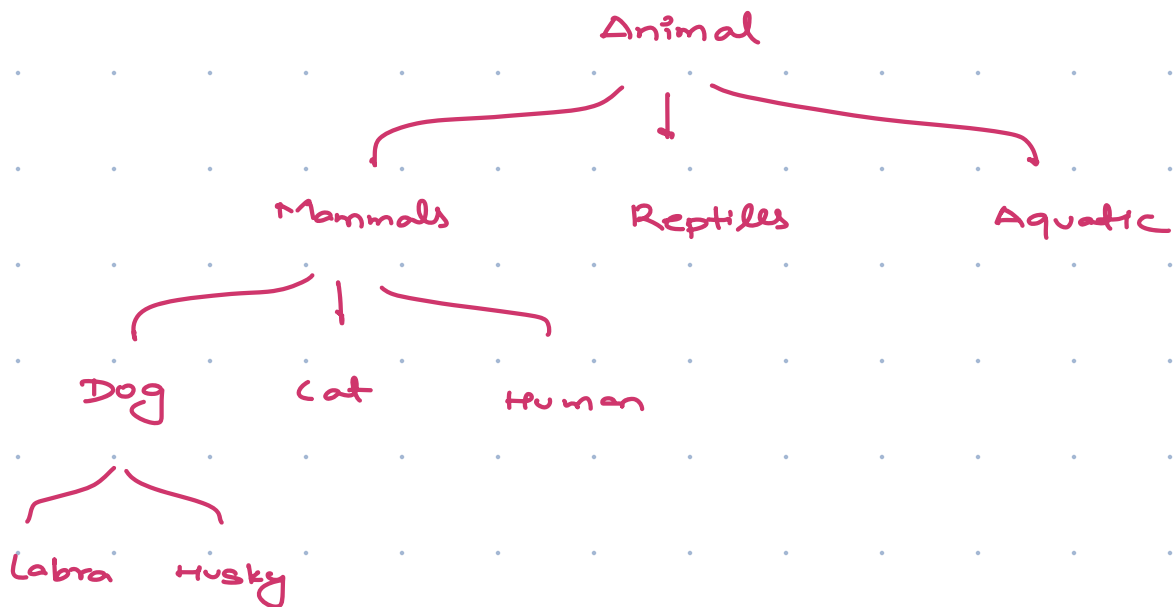 Animal
Mammals Reptiles Aquatic
Dog Cat Human
Labra Husky